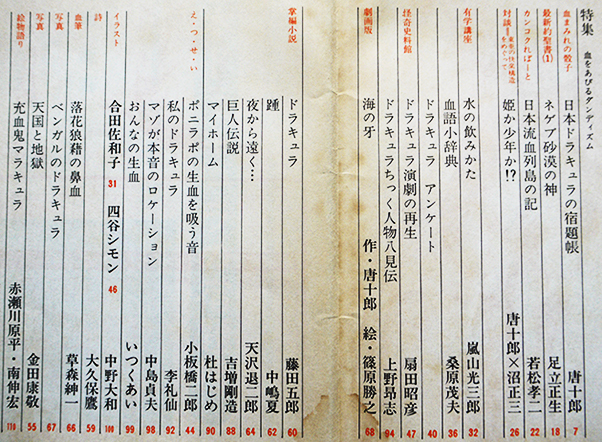 特集　血をあびるダンディズム
血まみれの骰子　日本ドラキュラの宿題帳　唐十郎　7
最新約聖書(1)　ネゲブ砂漠の神　足立正生　18
カンコクれぽーと　日本流血列島の記　若松孝二　22
対談＝東亜の快楽構造をめぐって　姫か少年か!?　唐十郎×沼正三　26
有学講座　水の飲みかた　嵐山光三郎　32
血語小辞典　桑原茂夫　36
ドラキュラ　アンケート　40
怪奇史料館　ドラキュラ演劇の再生　扇田昭彦　47
ドラキュラちっく人物八見伝　上野昂志　94
劇画版　海の牙　作・唐十郎　絵・篠原勝之　68
掌編小説　ドラキュラ　藤田五郎　60
踵　中嶋夏　62
夜から遠く…　天沢退二郎　64
巨人伝説　吉増剛造　88
マイホーム　杜はじめ　90
え・つ・せ・い　ボニラポの生血を吸う音　小板橋二郎　44
私のドラキュラ　李礼仙　92
マゾが本音のロケーション　中島貞夫　98
おんなの生血　いつくあい　99
イラスト　合田佐和子　31　四谷シモン　46　中野大和　108
詩　大久保鷹　59
血筆　落花狼藉の鼻血　草森紳一　66
写真　ベンガルのドラキュラ　67
写真　天国と地獄　金田康敬　55
絵物語り　充血鬼マラキュラ　赤瀬川原平・南伸宏　110